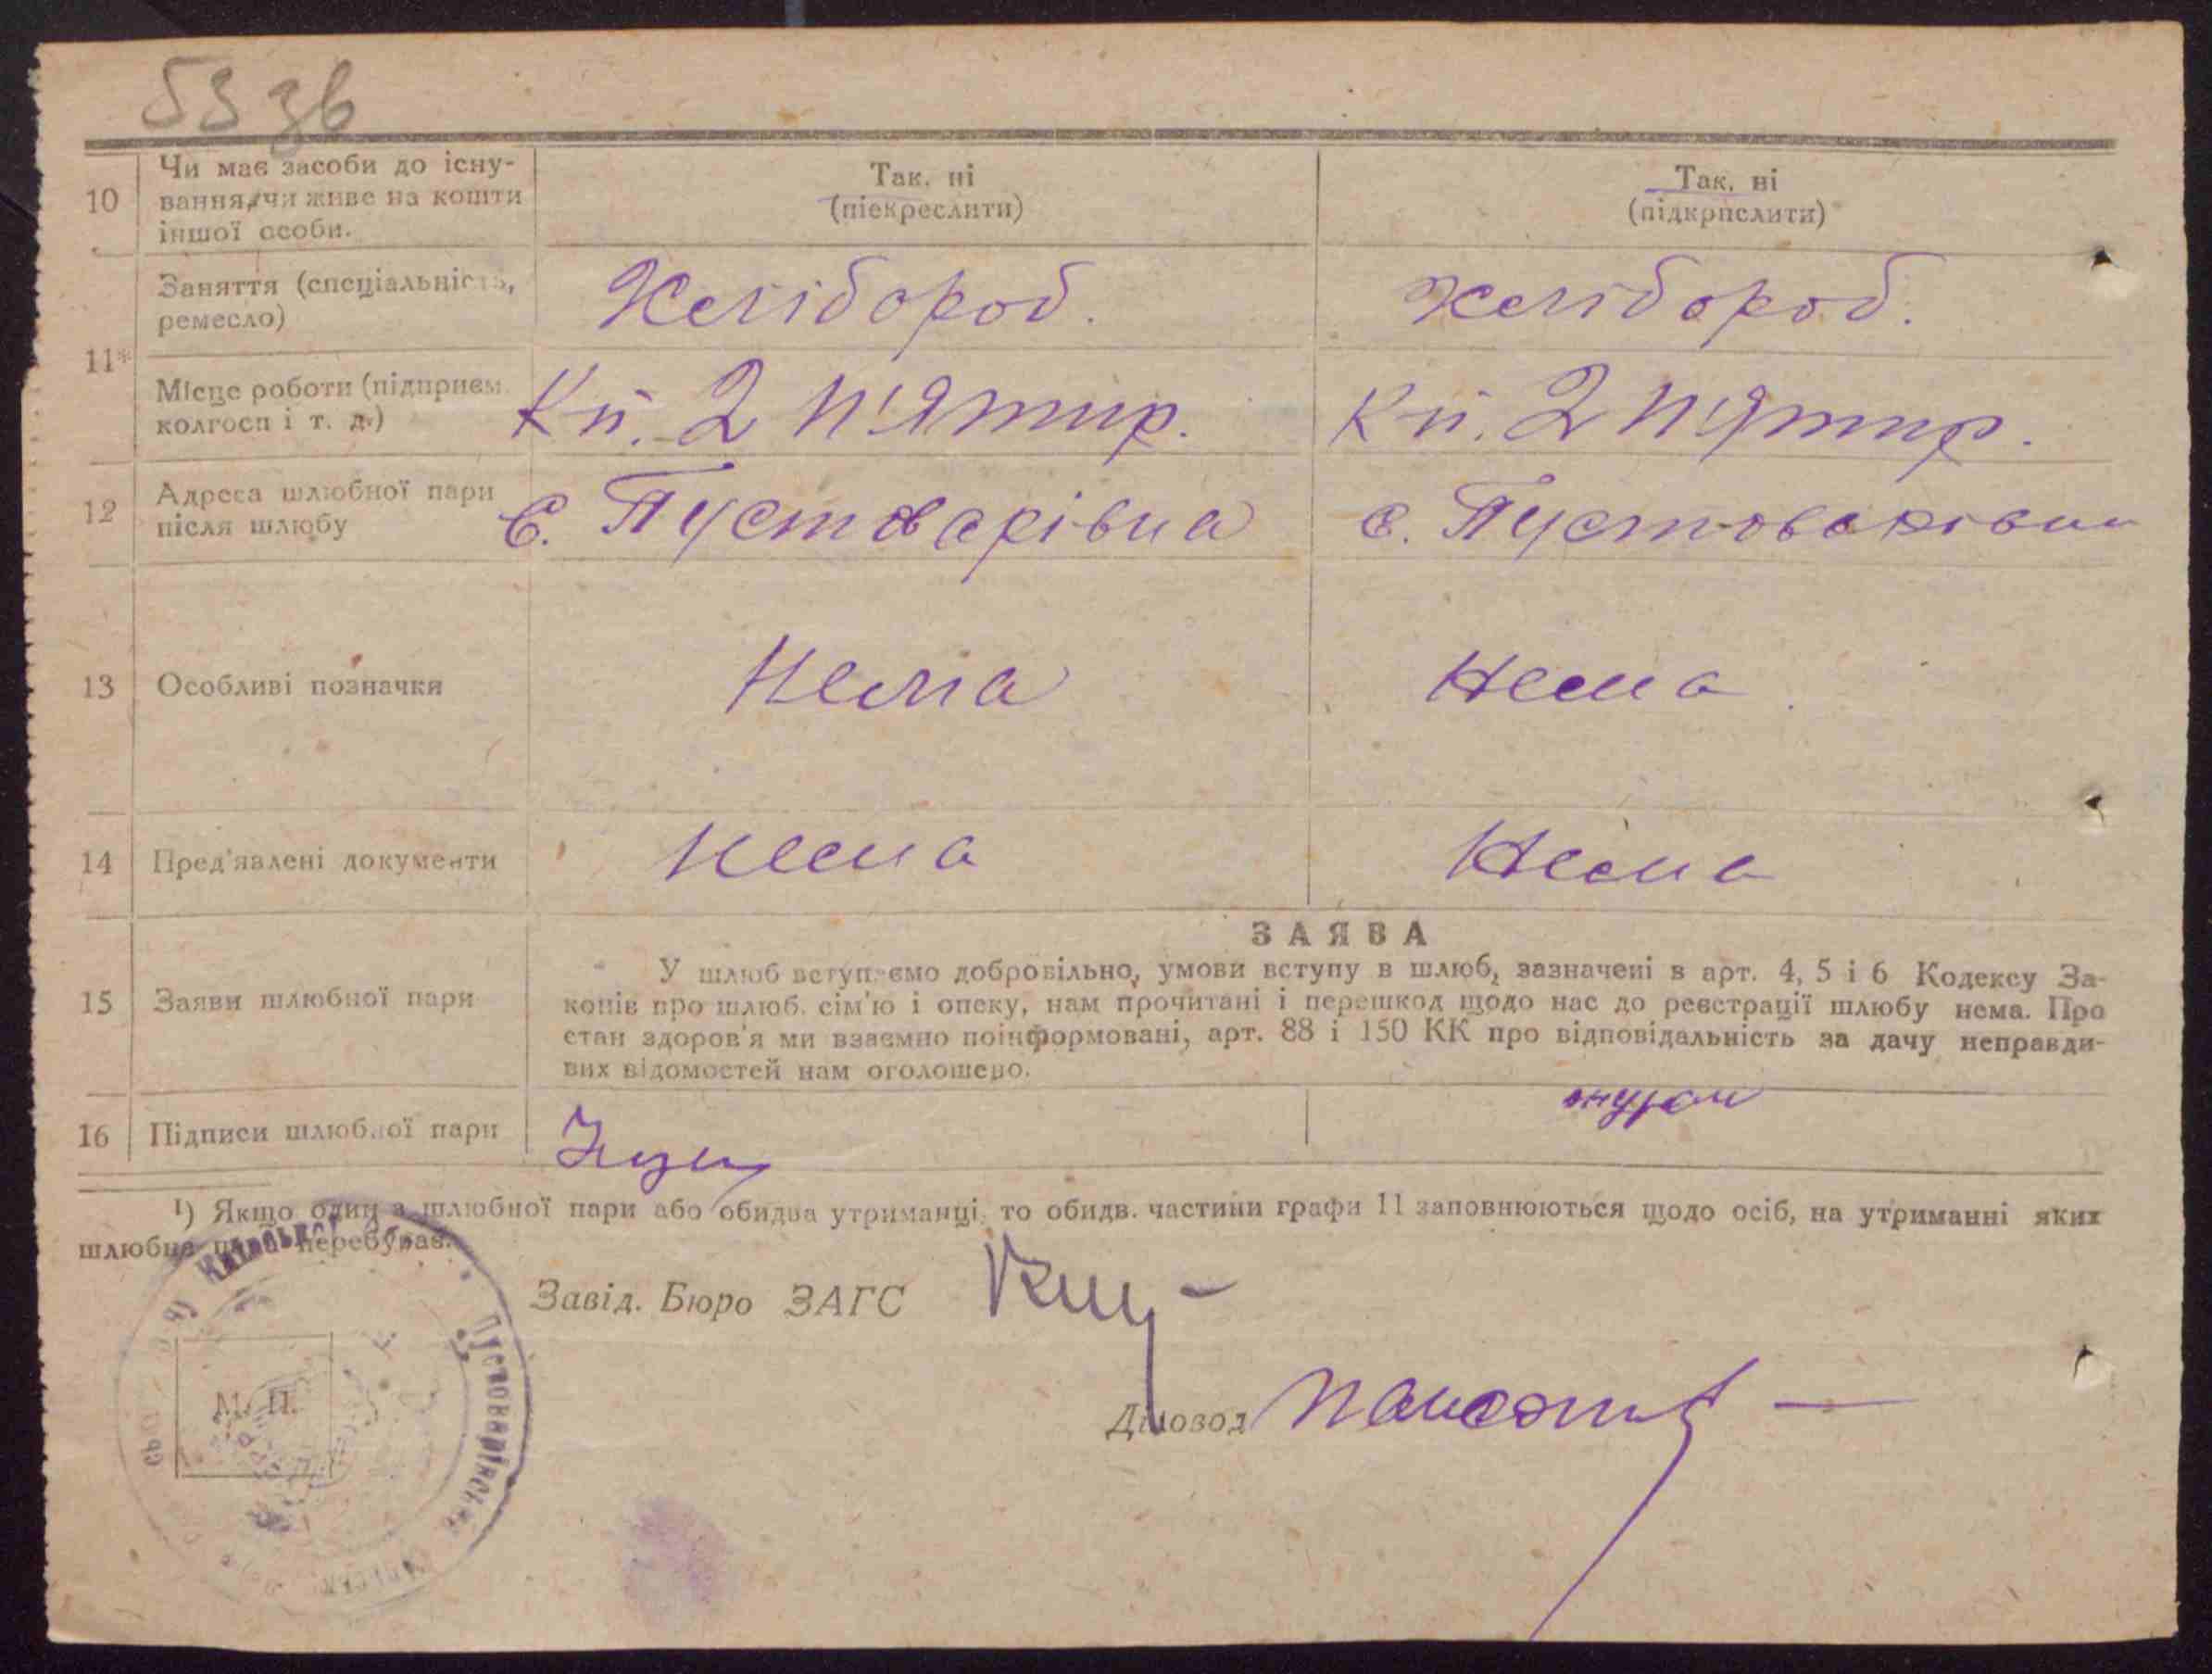 53 зв
10 Чи має засоби до існу-
вання, чи живе на кошти
іншої особи.
Так, ні
(піекреслити)
Так, ні
(підкрислити)
11*
Заняття (спеціальність,
ремесло)
Хлібороб.
хлібороб.
Місце роботи (підприєм.
колгосп і т. д.)
Кп. 2 П'ятир.
Кп. 2 П'ятир.
12 Адреса шлюбної пари
після шлюбу
С. Пустоварівка
с. Пустоварівка
13 Особливі позначки
Нема
Нема
14 Пред'явлені документи
Нема
Нема
15 Заяви шлюбної пари
ЗАЯВА
У шлюб вступаємо добровільно, умови вступу в шлюб, зазначені в арт. 4, 5 і 6 Кодексу За-
конів про шлюб. сім'ю і опеку, нам прочитані і перешкод щодо нас до реєстрації шлюбу нема. Про
стан здоров'я ми взаємно поінформовані, арт. 88 і 150 КК про відповідальність за дачу неправди-
вих відомостей нам оголошено.
16 Підписи шлюбної пари
1) Якщо один з шлюбної пари або обидва утриманці, то обидв. частини графи 11 заповнюються щодо осіб, на утриманні яких
шлюбна пара перебуває.
Київської
Пустоварівськ
М. П.
Завід. Бюро ЗАГС
Діловод